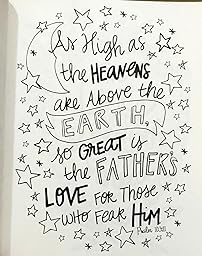 As High as
the HEAVENS
are Above the
EARTH,
so GREAT is
the FATHER'S
LOVE FOR THOSE
WHO FEAR HIM
Psalm 103:11